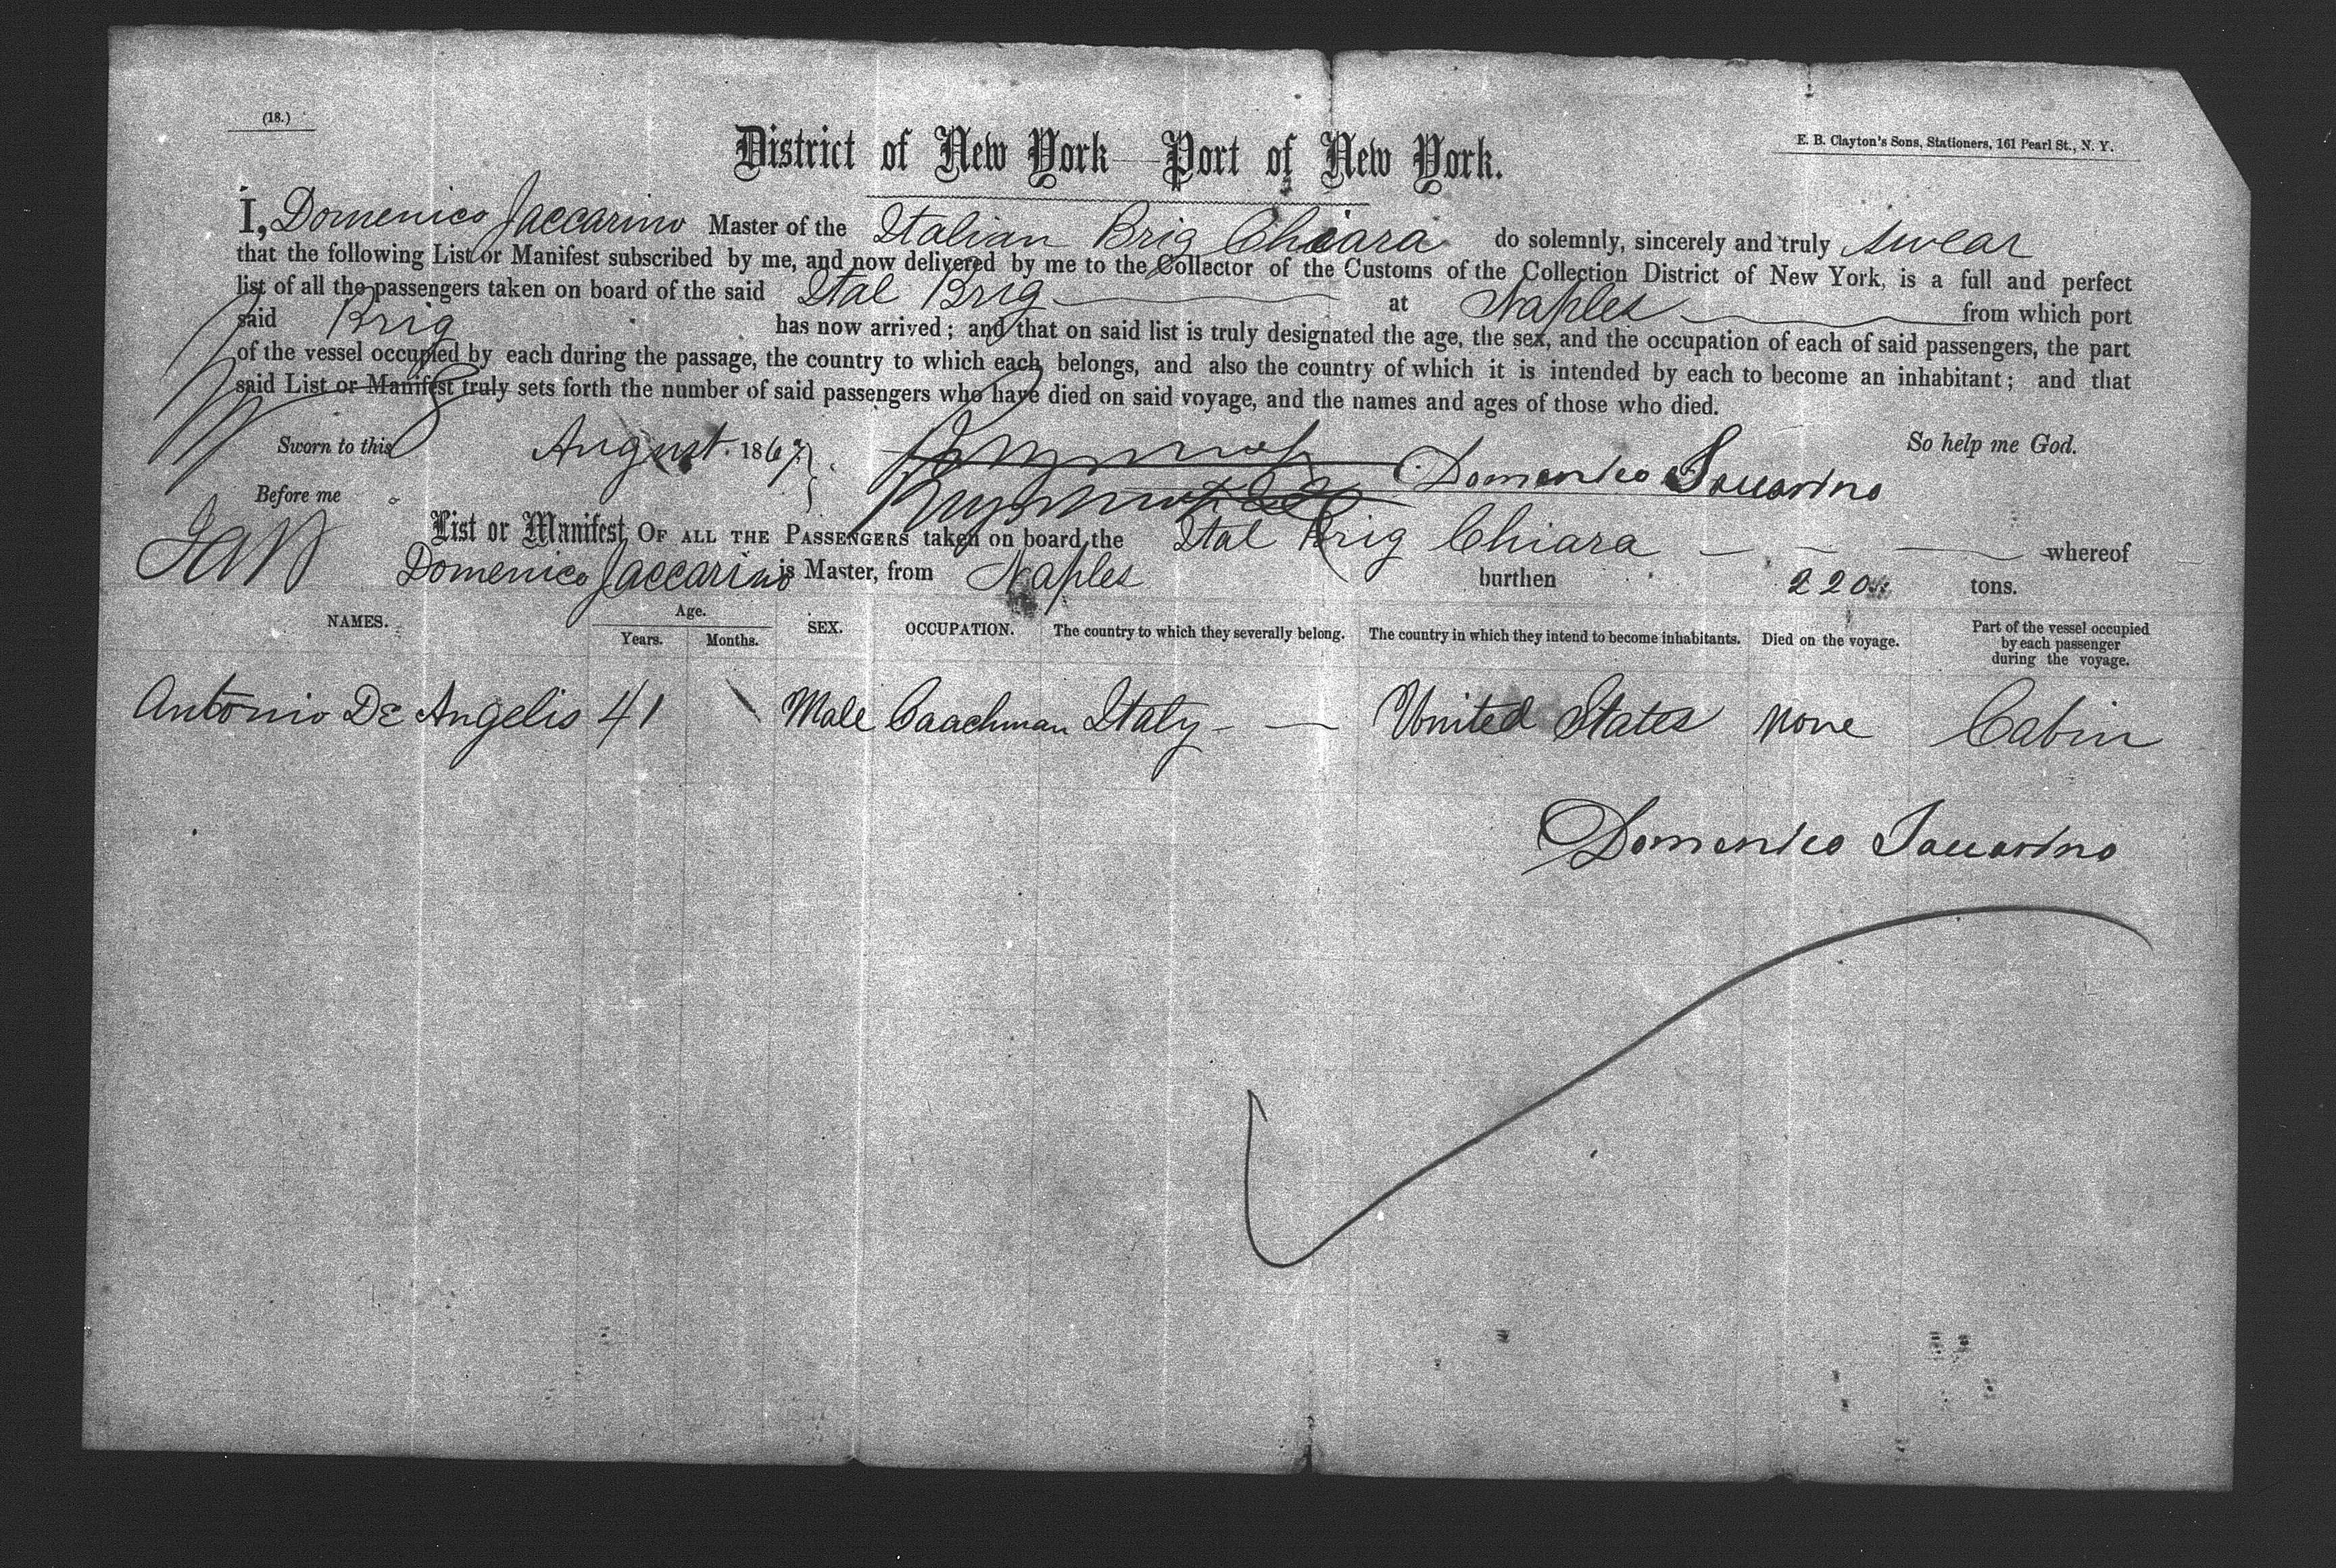 (18.)
E. B. Clayton's Sons, Stationers, 161 Pearl St., N. Y.
District of New York—Port of New York.
I, Domenico Jaccarino Master of the Italian Brig Chiara do solemnly, sincerely and truly swear
that the following List or Manifest subscribed by me, and now delivered by me to the Collector of the Customs of the Collection District of New York, is a full and perfect
list of all the passengers taken on board of the said Ital Brig at Naples from which port
said Brig has now arrived; and that on said list is truly designated the age, the sex, and the occupation of each of said passengers, the part
of the vessel occupied by each during the passage, the country to which each belongs, and also the country of which it is intended by each to become an inhabitant; and that
said List or Manifest truly sets forth the number of said passengers who have died on said voyage, and the names and ages of those who died.
So help me God.
Sworn to this August 1867 Domenico Jaccarino
Before me
List or Manifest OF ALL THE PASSENGERS taken on board the Ital Brig Chiara whereof
Domenico Jaccarino is Master, from Naples burthen 220 tons.
NAMES. Age. Years. Months. SEX. OCCUPATION. The country to which they severally belong. The country in which they intend to become inhabitants. Died on the voyage. Part of the vessel occupied by each passenger during the voyage.
Antonio De Angelis 41 Male Coachman Italy United States None Cabin
Domenico Jaccarino